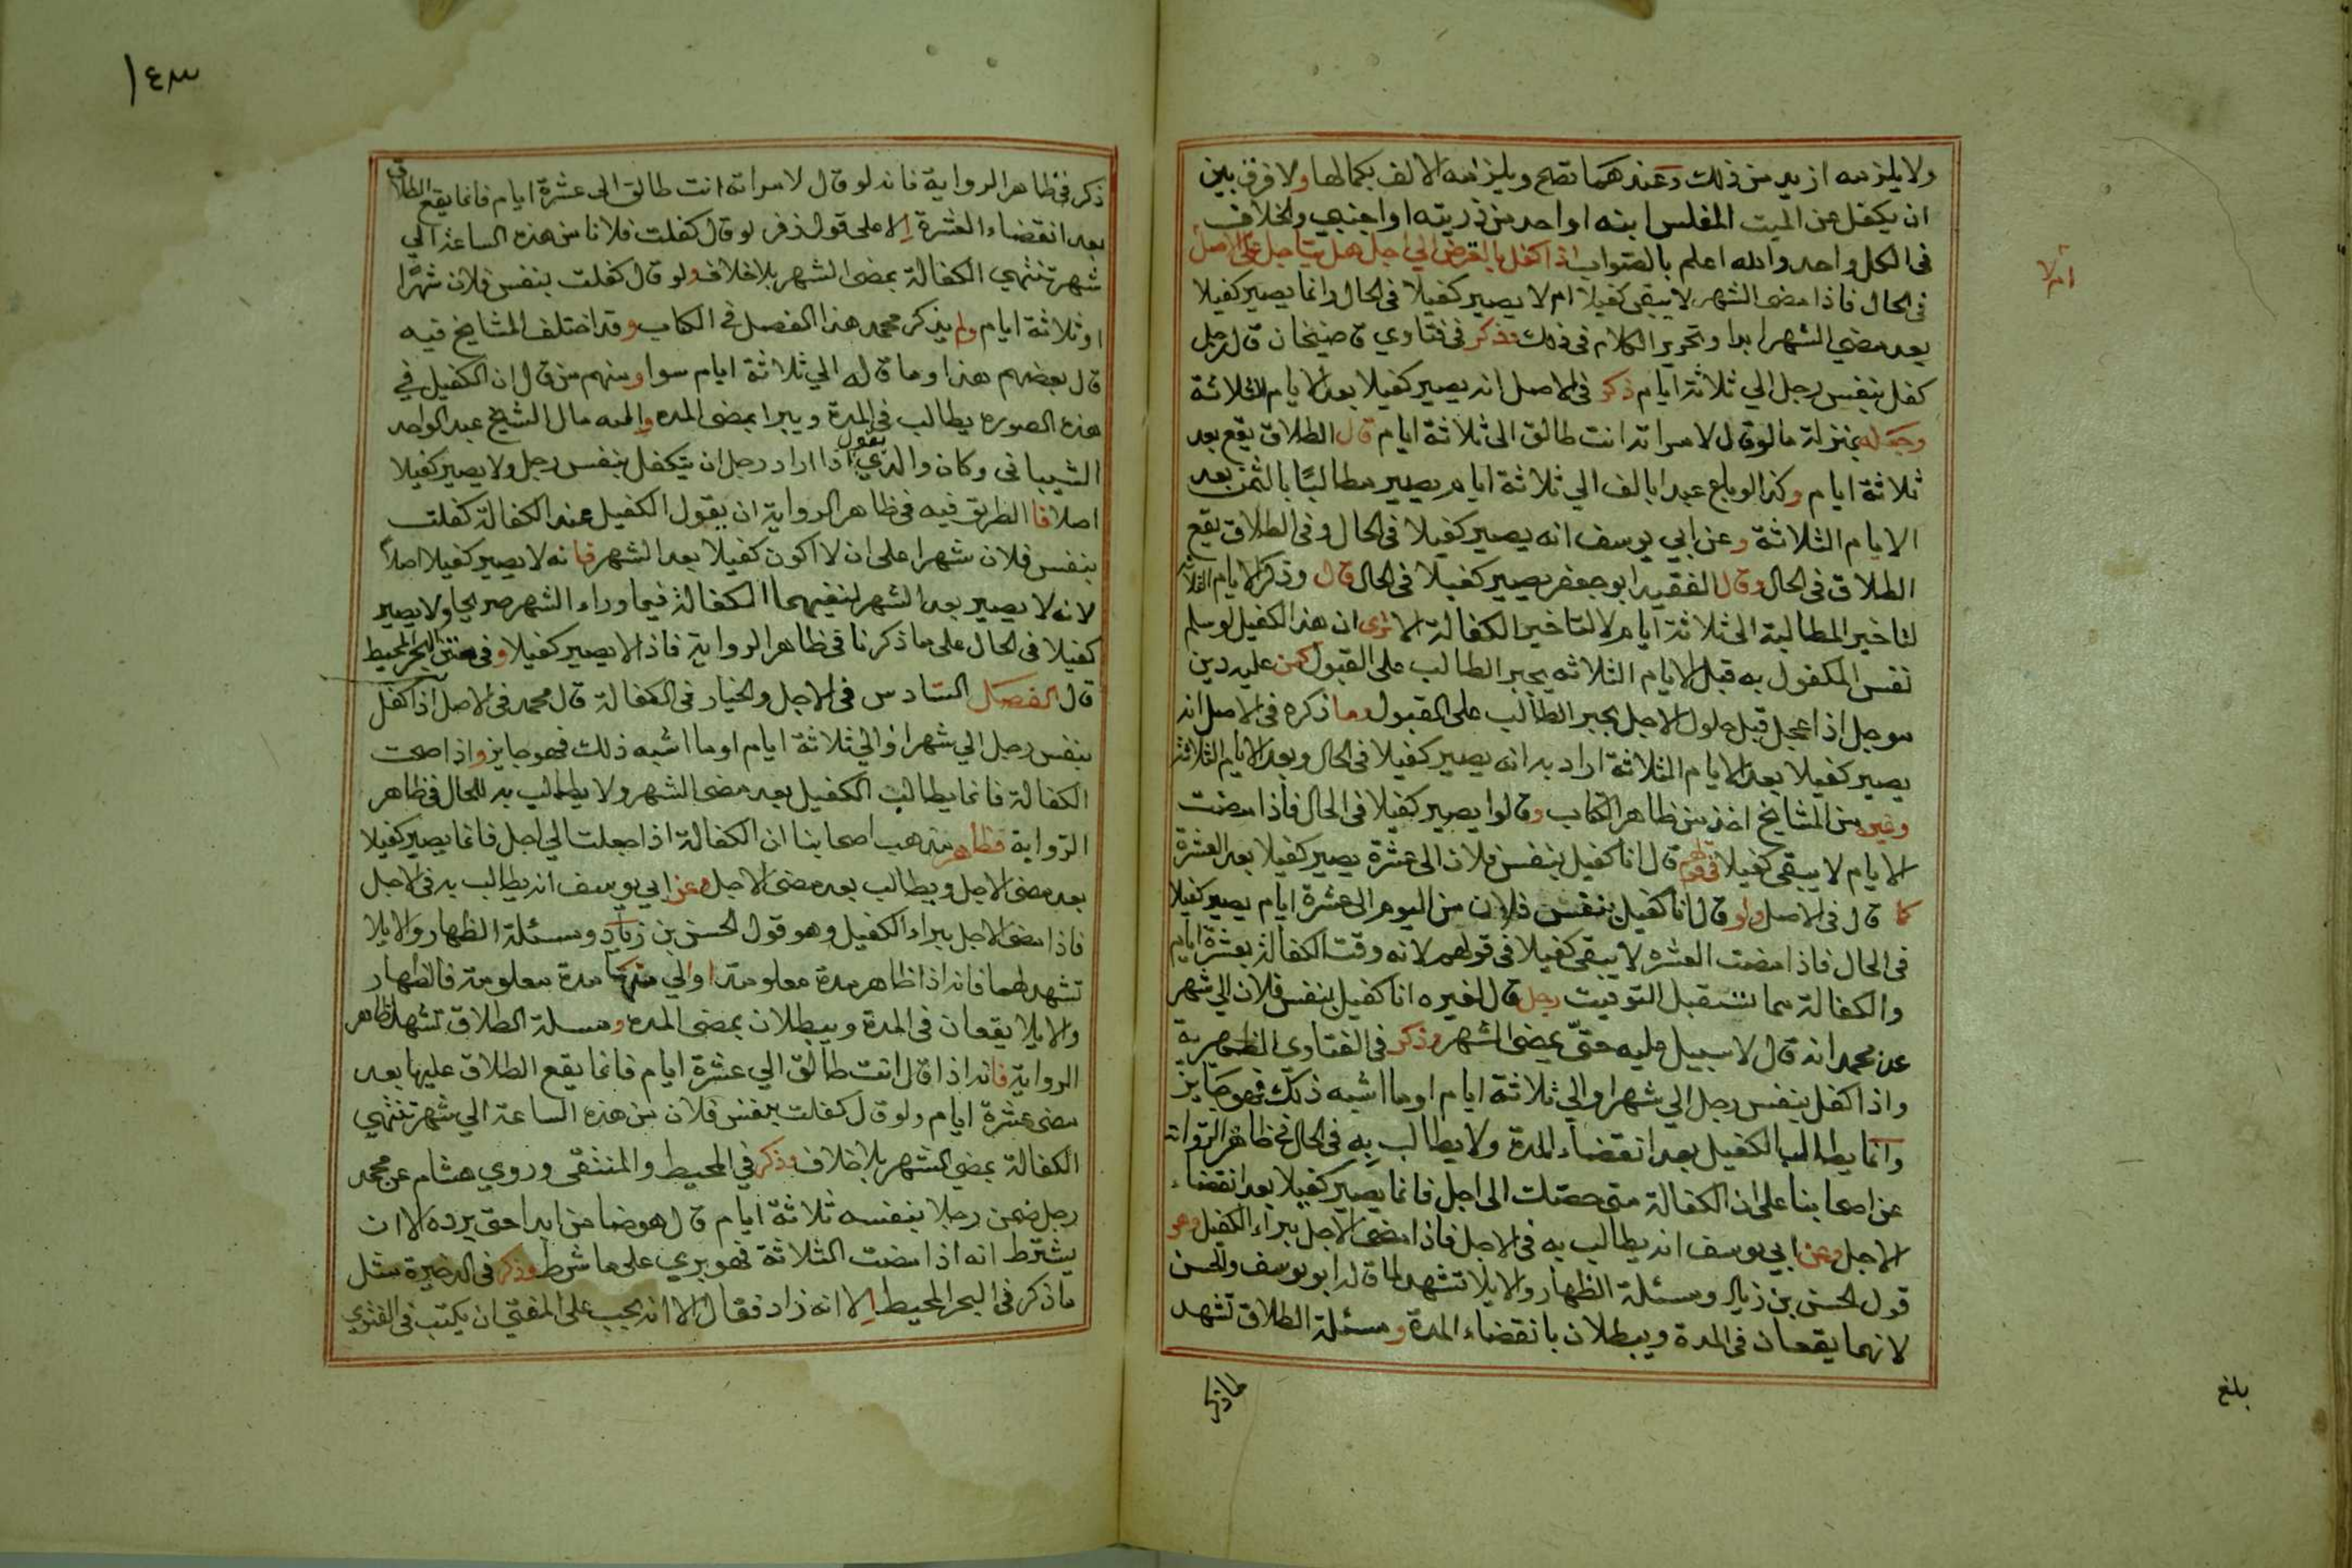 ولا يلزمه ازيد من ذلك وعندهما تصح ويلزمه الالف بكمالها ولا فرق بين
ان يكفل عن الميت المفلس ابنه او احد من ذريته او اجنبي والخلاف
فى الكل واحد والله اعلم بالصواب اذا كفل بالقرض الي اجل هل يتاجل على الاصل
ام لا
فى الحال فاذا مضى الشهر لا يبقى كفيلا ام لا يصير كفيلا فى الحال وانما يصير كفيلا
بعد مضي الشهر ابدا وتحرير الكلام فى ذلك وذكر فى فتاوي قاضيخان قال رجل
كفل بنفس رجل الي ثلاثة ايام ذكر فى الاصل انه يصير كفيلا بعد الايام الثلاثة
وجعله بمنزلة ما لو قال لامراته انت طالق الى ثلاثة ايام قال الطلاق يقع بعد
ثلاثة ايام وكذا لو باع عبدا بالف الي ثلاثة ايام يصير مطالبًا بالثمن بعد
الايام الثلاثة وعن ابي يوسف انه يصير كفيلا فى الحال وفى الطلاق يقع
الطلاق فى الحال وقال الفقيه ابو جعفر يصير كفيلا فى الحال قال وذكر الايام الثلاثة
لتاخير المطالبة الى ثلاثة ايام لا لتاخير الكفالة الا ترى ان هذا الكفيل لو سلم
نفس المكفول به قبل الايام الثلاثه يجبر الطالب على القبول كمن عليه دين
موجل اذا عجل قبل حلول الاجل يجبر الطالب على القبول وما ذكره فى الاصل انه
يصير كفيلا بعد الايام الثلاثة اراد به انه يصير كفيلا فى الحال وبعد الايام الثلاثة
وغيره من المشايخ اخذ من ظاهر الكتاب وقالوا يصير كفيلا فى الحال فاذا مضت
الايام لا يبقى كفيلا فى قولهم قال انا كفيل بنفس فلان الى عشرة يصير كفيلا بعد العشرة
كما قال فى الاصل ولو قال انا كفيل بنفس فلان من اليوم الى عشرة ايام يصير كفيلا
فى الحال فاذا مضت العشره لا يبقى كفيلا فى قولهم لانه وقت الكفالة بعشرة ايام
والكفالة مما تستقبل التوقيت رجل قال لغيره انا كفيل بنفس فلان الي شهر
عن محمد انه قال لا سبيل عليه حتّى يمضى الشهر وذكر فى الفتاوي الظهيرية
واذا كفل بنفس رجل الي شهر او الي ثلاثة ايام او ما اشبه ذلك فهو جايز
وانما يطالب الكفيل بعد انقضاء المدة ولا يطالب به فى الحال فى ظاهر الرواية
عن اصحابنا على ان الكفالة متى حصلت الى اجل فانما يصير كفيلا بعد انقضاء
الاجل وعن ابي يوسف انه يطالب به فى الاجل فاذا مضى الاجل يبراء الكفيل وهو
قول الحسن بن زياد ومسئلة الظهار والايلا تشهد لما قاله ابو يوسف والحسن
لانهما يقعان فى المدة ويبطلان بانقضاء المدة ومسئلة الطلاق تشهد
لما ذكر
بلغ
١٤٣
ذكر فى ظاهر الرواية فانه لو قال لامراته انت طالق الى عشرة ايام فانما يقع الطلاق
بعد انقضاء العشرة الا على قول زفر لو قال كفلت فلانا من هذه الساعة الي
شهر تنتهي الكفالة بمضى الشهر بلا خلاف ولو قال كفلت بنفس فلان شهرًا
او ثلاثة ايام ولم يذكر محمد هذا الفصل فى الكتاب وقد اختلف المشايخ فيه
قال بعضهم هذا وما قاله الي ثلاثة ايام سوا ومنهم من قال ان الكفيل في
هذه الصوره يطالب فى المدة ويبرا بمضى المده واليه مال الشيخ عبد الواحد
الشيباني وكان والدي يقول اذا اراد رجل ان يتكفل بنفس رجل ولا يصير كفيلا
اصلا فا الطريق فيه فى ظاهر الرواية ان يقول الكفيل عند الكفالة كفلت
بنفس فلان شهرا على ان لا اكون كفيلا بعد الشهر فانه لا يصير كفيلا اصلاً
لانه لا يصير بعد الشهر لنفيهما الكفالة فيما وراء الشهر صريحا ولا يصير
كفيلا فى الحال على ما ذكرنا فى ظاهر الرواية فاذا لا يصير كفيلا وفى متن البحر المحيط
قال الفصل السادس فى الاجل والخيار فى الكفالة قال محمد فى الاصل اذا كفل
بنفس رجل الي شهر او الي ثلاثة ايام او ما اشبه ذلك فهو جايز واذا صحت
الكفالة فانما يطالب الكفيل بعد مضى الشهر ولا يطالب به للحال فى ظاهر
الرواية فظاهر مذهب اصحابنا ان الكفالة اذا جعلت الي اجل فانما يصير كفيلا
بعد مضى الاجل ويطالب بعد مضى الاجل وعن ابي يوسف انه يطالب به فى الاجل
فاذا مضى الاجل يبراء الكفيل وهو قول الحسن بن زياد ومسئلة الظهار والايلا
تشهد لهما فانه اذا ظاهر مدة معلومة او الي منها مدة معلومة فالظهار
والايلا يقعان فى المدة ويبطلان بمضى المده ومسلة الطلاق تشهد لظاهر
الرواية فانه اذا قال انت طالق الي عشرة ايام فانما يقع الطلاق عليها بعد
مضى عشرة ايام ولو قال كفلت بنفس فلان من هذه الساعة الي شهر تنتهي
الكفالة بمضي الشهر بلا خلاف وذكر في المحيط والمنتقى وروي هشام عن محمد
رجل ضمن رجلا بنفسه ثلاثة ايام قال هو ضامن ابدا حتى يرده الا ان
يشترط انه اذا مضت الثلاثة فهو بري على ما شرط وذكر فى الذخيرة مثل
ما ذكر فى البحر المحيط الا انه زاد فقال الا انه يجب على المفتي ان يكتب فى الفتوي